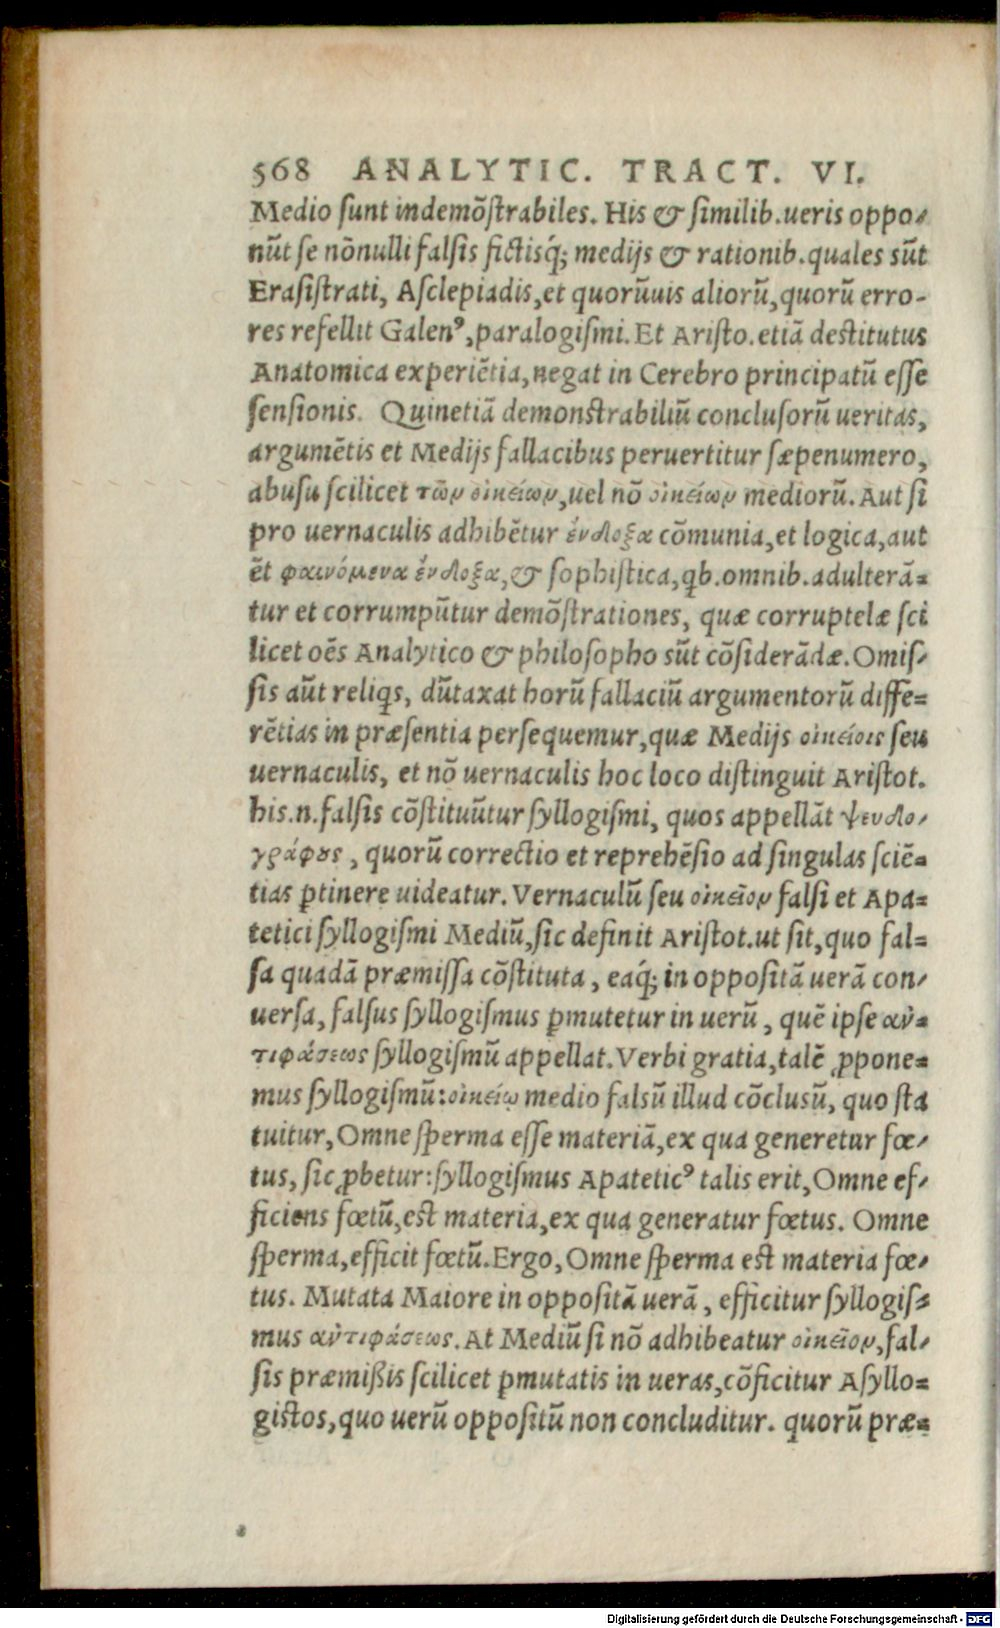 568 ANALYTIC. TRACT. VI.
Medio sunt indemõstrabiles. His & similib. ueris oppo-
nũt se nõnulli falsis fictisq́; medijs & rationib. quales sũt
Erasistrati, Asclepiadis, et quorũuis aliorũ, quorũ erro-
res refellit Galenꝰ, paralogismi. Et Aristo. etiã destitutus
Anatomica experiẽtia, negat in Cerebro principatũ esse
sensionis. Quinetiã demonstrabiliũ conclusorũ ueritas,
argumẽtis et Medijs fallacibus peruertitur sæpenumero,
abusu scilicet τῶν οἰκείων, uel nõ οἰκείων mediorũ. Aut si
pro uernaculis adhibẽtur ἔνδοξα cõmunia, et logica, aut
ẽt φαινόμενα ἔνδοξα, & sophistica, qb. omnib. adulterã-
tur et corrumpũtur demõstrationes, quæ corruptelæ sci
licet oẽs Analytico & philosopho sũt cõsiderãdæ. Omis-
sis aũt reliqs, dũtaxat horũ fallaciũ argumentorũ diffe-
rẽtias in præsentia persequemur, quæ Medijs οἰκείοις seu
uernaculis, et nõ uernaculis hoc loco distinguit Aristot.
his.n. falsis cõstituũtur syllogismi, quos appellãt ψευδο-
γράφους, quorũ correctio et reprehẽsio ad singulas sciẽ-
tias ꝑtinere uideatur. Vernaculũ seu οἰκεῖον falsi et Apa-
tetici syllogismi Mediũ, sic definit Aristot. ut sit, quo fal-
sa quadã præmissa cõstituta, eaq́; in oppositã uerã con-
uersa, falsus syllogismus ꝑmutetur in uerũ, quẽ ipse ἀν-
τιφάσεως syllogismũ appellat. Verbi gratia, talẽ ꝓpone-
mus syllogismũ: οἰκείῳ medio falsũ illud cõclusũ, quo sta
tuitur, Omne sperma esse materiã, ex qua generetur fœ-
tus, sic ꝓbetur: syllogismus Apateticꝰ talis erit, Omne ef-
ficiens fœtũ, est materia, ex qua generatur fœtus. Omne
sperma, efficit fœtũ. Ergo, Omne sperma est materia fœ-
tus. Mutata Maiore in oppositã uerã, efficitur syllogis-
mus ἀντιφάσεως. At Mediũ si nõ adhibeatur οἰκεῖον, fal-
sis præmißis scilicet ꝑmutatis in ueras, cõficitur Asyllo-
gistos, quo uerũ oppositũ non concluditur. quorũ præ-
Digitalisierung gefördert durch die Deutsche Forschungsgemeinschaft - DFG